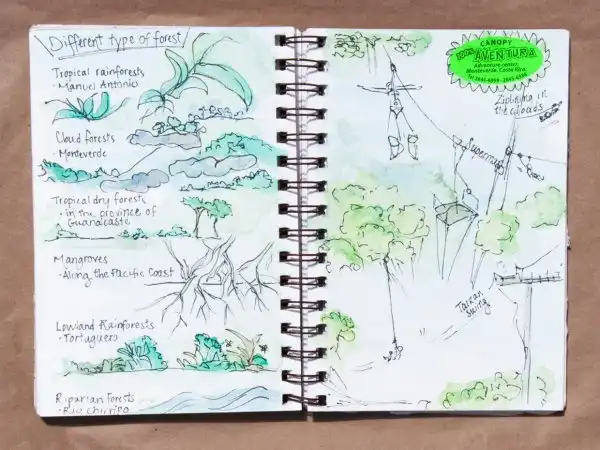 Different type of forest
Tropical rainforests
· Manuel Antonio
Cloud forests
· Monteverde
Tropical dry forests
· in the province of
Guanacaste
Mangroves
· Along the Pacific Coast
Lowland Rainforests
· Tortuguero
Riparian forests
· Rio Chirripo
CANOPY
AVENTURA
Adventure center,
Monteverde, Costa Rica.
Ziplining in
the clouds
Superman
Tarzan
swing